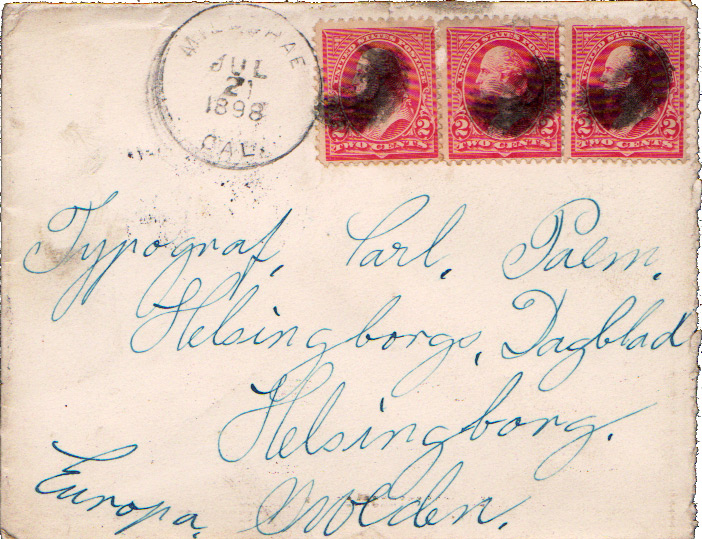 MILLBRAE
JUL
21
1898
CAL.
UNITED STATES POSTAGE
2 2
TWO CENTS
UNITED STATES POSTAGE
2 2
TWO CENTS
UNITED STATES POSTAGE
2 2
TWO CENTS
Typograf, Carl, Palm,
Helsingborgs, Dagblad
Helsingborg.
Europa, Sweden.